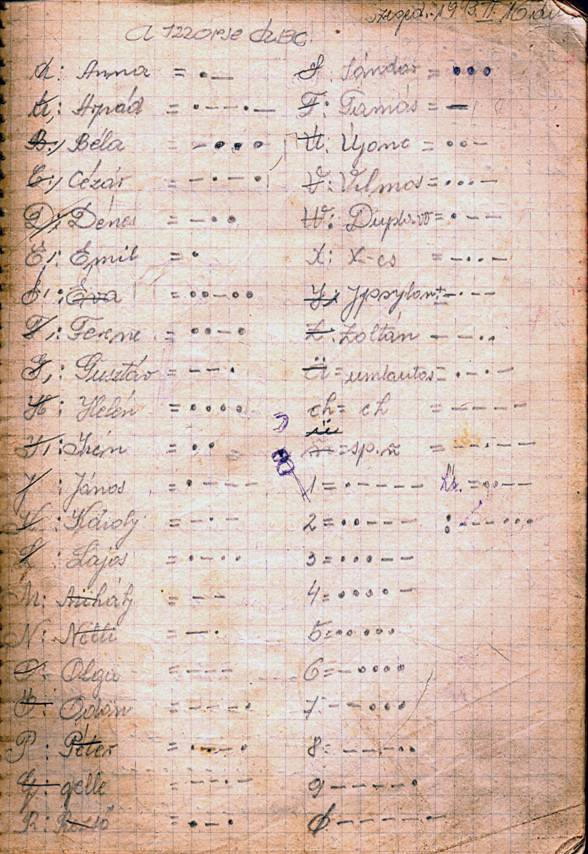 Szeged. 1943. II.
A Morse ábc.
A: Anna = • —
Á: Árpád = • — — • —
B: Béla = — • • •
C: Cézár = — • — •
D: Dénes = — • •
E: Emil = •
É: Éva = • • — • •
F: Ferenc = • • — •
G: Gusztáv = — — •
H: Helén = • • • •
I: Irén = • •
J: János = • — — —
K: Károly = — • —
L: Lajos = • — • •
M: Mihály = — —
N: Netti = — •
O: Olga = — — —
Ö: Ödön = — — — •
P: Péter = • — — •
Q: qelle = — — • —
R: Rezső = • — •
S: Sándor = • • •
T: Tamás = —
U: Újonc = • • —
V: Vilmos = • • • —
W: Duplavé = • — —
X: X-es = — • • —
Y: Ypsylon = — • — —
Z: Zoltán = — — • •
Ä = umlautos = • — • —
ch = ch = — — — —
1 = • — — — —
2 = • • — — —
3 = • • • — —
4 = • • • • —
5 = • • • • •
6 = — • • • •
7 = — — • • •
8 = — — — • •
9 — — — — •
0 — — — — —